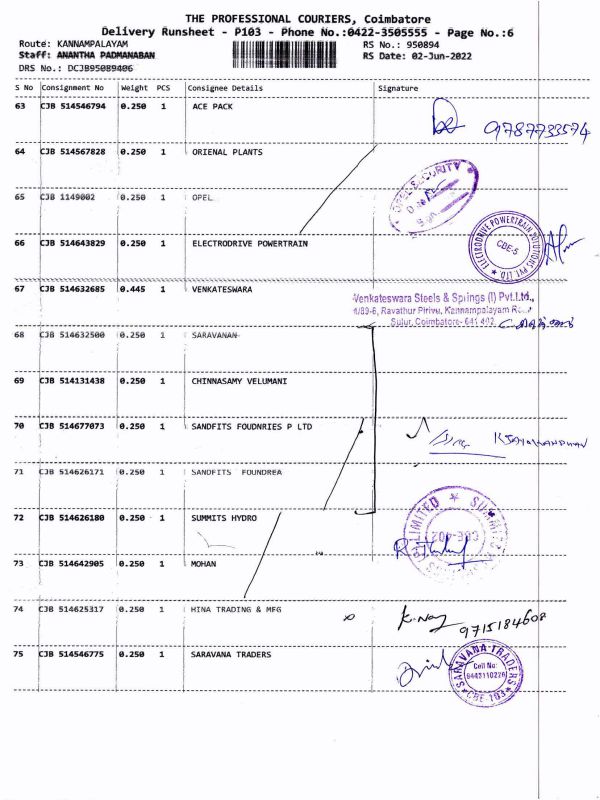 THE PROFESSIONAL COURIERS, Coimbatore
Delivery Runsheet - P103 - Phone No.:0422-3505555 - Page No.:6
Route: KANNAMPALAYAM
RS No.: 950894
Staff: ANANTHA PADMANABAN
RS Date: 02-Jun-2022
DRS No.: DCJB95089406
S No Consignment No Weight PCS Consignee Details Signature
63 CJB 514546794 0.250 1 ACE PACK
9787733574
64 CJB 514567828 0.250 1 ORIENAL PLANTS
65 CJB 1149002 0.250 1 OPEL
OPEL SECURITY
66 CJB 514643829 0.250 1 ELECTRODRIVE POWERTRAIN
ELECTRODRIVE POWERTRAIN SOLUTIONS PVT. LTD.
CBE-5
67 CJB 514632685 0.445 1 VENKATESWARA
Venkateswara Steels & Springs (I) Pvt.Ltd.,
1/89-6, Ravathur Pirivu, Kannampalayam
Sulur, Coimbatore- 641 402
68 CJB 514632500 0.250 1 SARAVANAN
69 CJB 514131438 0.250 1 CHINNASAMY VELUMANI
70 CJB 514677073 0.250 1 SANDFITS FOUDNRIES P LTD
71 CJB 514626171 0.250 1 SANDFITS FOUNDREA
72 CJB 514626180 0.250 1 SUMMITS HYDRO
LIMITED
73 CJB 514642905 0.250 1 MOHAN
74 CJB 514625317 0.250 1 HINA TRADING & MFG
9715184608
75 CJB 514546775 0.250 1 SARAVANA TRADERS
SARAVANA TRADERS
Cell No:
9443110226
CBE-103